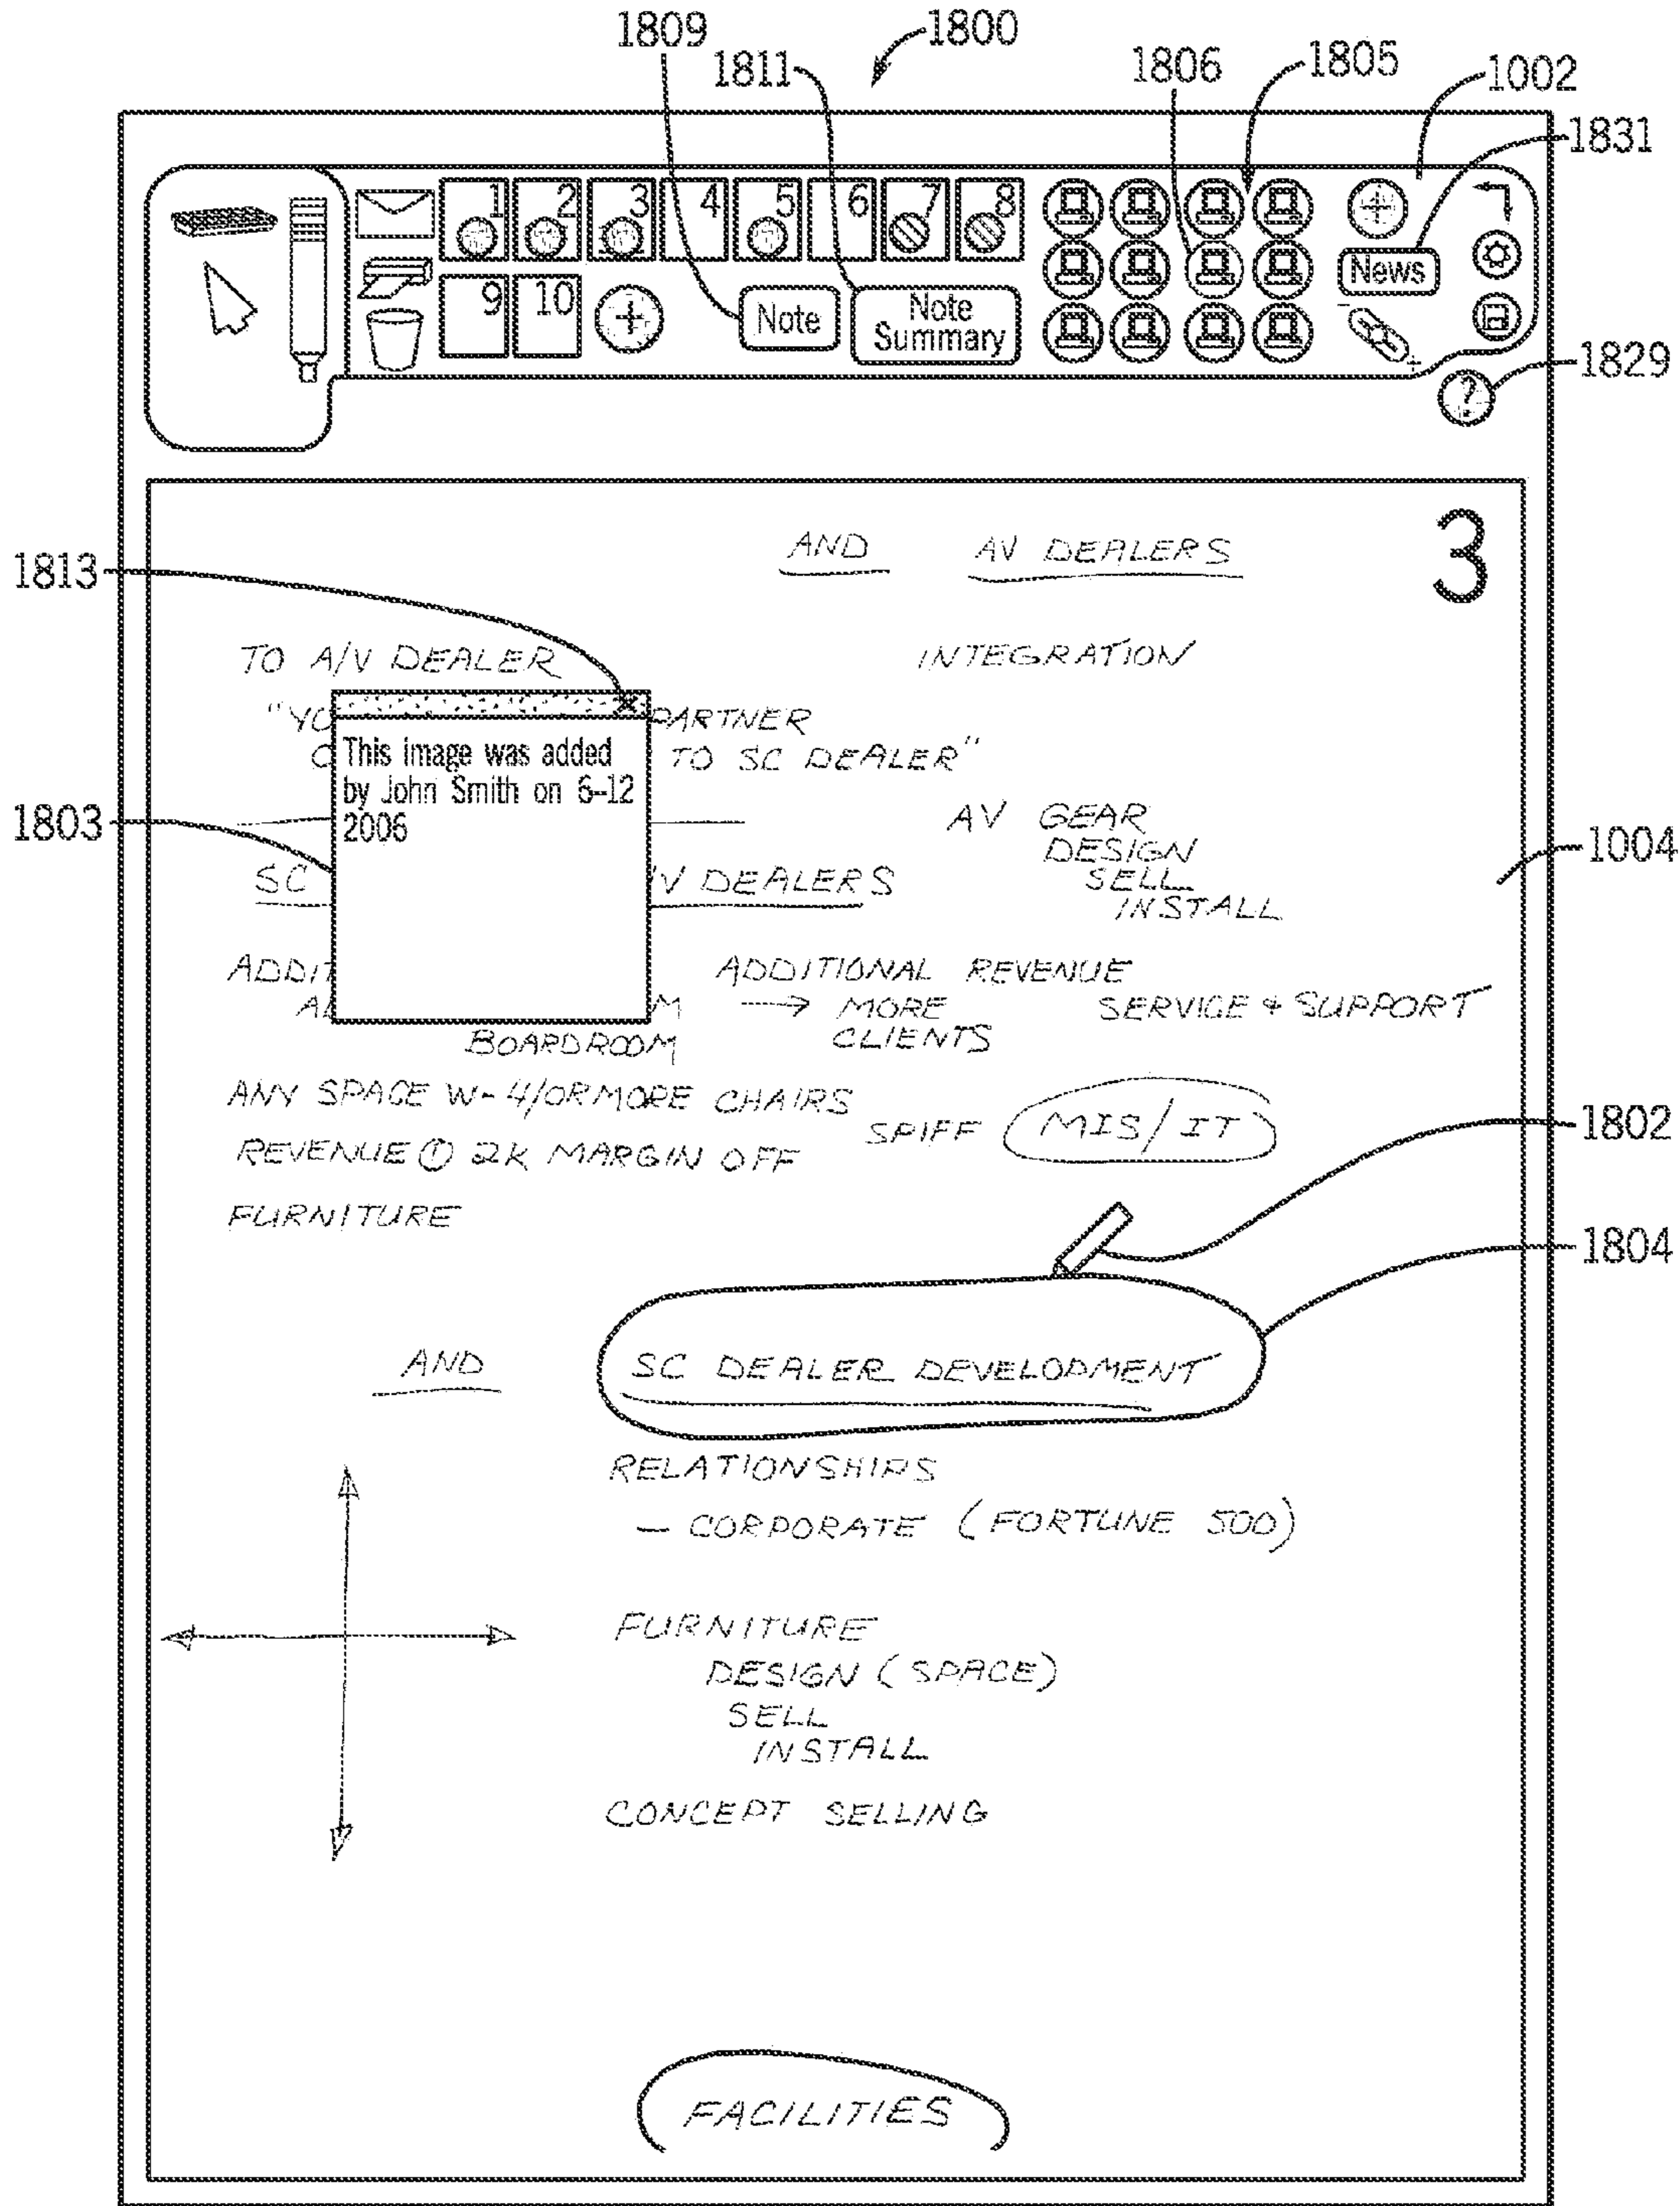 1809
1800
1811
1806
1805
1002
1831
1 2 3 4 5 6 7 8
9 10
Note
Note
Summary
News
1829
?
3
AND AV DEALERS
1813
TO A/V DEALER INTEGRATION
"YO PARTNER
TO SC DEALER"
This image was added
by John Smith on 6-12
2006
1803
AV GEAR
DESIGN
SELL
INSTALL
1004
SC V DEALERS
ADDIT ADDITIONAL REVENUE
M → MORE
CLIENTS
SERVICE + SUPPORT
BOARDROOM
ANY SPACE W- 4/OR MORE CHAIRS
SPIFF MIS/IT
1802
REVENUE @ 2K MARGIN OFF
FURNITURE
1804
AND SC DEALER DEVELOPMENT
RELATIONSHIPS
— CORPORATE (FORTUNE 500)
FURNITURE
DESIGN (SPACE)
SELL
INSTALL
CONCEPT SELLING
FACILITIES